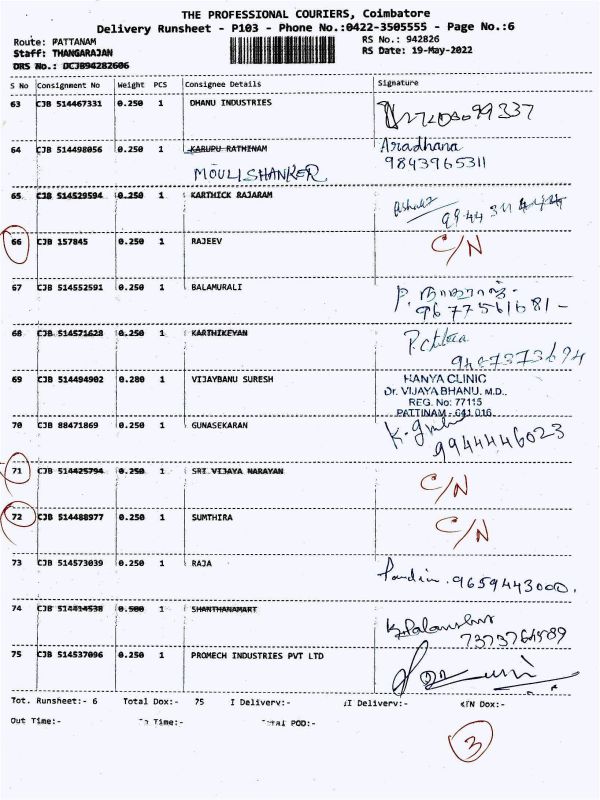 THE PROFESSIONAL COURIERS, Coimbatore
Delivery Runsheet - P103 - Phone No.:0422-3505555 - Page No.:6
Route: PATTANAM
RS No.: 942826
Staff: THANGARAJAN
RS Date: 19-May-2022
DRS No.: DCJB94282606
S No Consignment No Weight PCS Consignee Details Signature
63 CJB 514467331 0.250 1 DHANU INDUSTRIES
64 CJB 514498056 0.250 1 KARUPU RATHINAM Aradhana
MOULISHANKER 9843965311
65 CJB 514529594 0.250 1 KARTHICK RAJARAM
66 CJB 157845 0.250 1 RAJEEV C/N
67 CJB 514552591 0.250 1 BALAMURALI
9677561681-
68 CJB 514571628 0.250 1 KARTHIKEYAN
69 CJB 514494902 0.280 1 VIJAYBANU SURESH HANYA CLINIC
Dr. VIJAYA BHANU. M.D.,
REG. No: 77115
PATTINAM - 641 016.
70 CJB 88471869 0.250 1 GUNASEKARAN
9944446023
71 CJB 514425794 0.250 1 SRI VIJAYA NARAYAN C/N
72 CJB 514488977 0.250 1 SUMTHIRA C/N
73 CJB 514573039 0.250 1 RAJA 9659443000.
74 CJB 514414538 0.500 1 SHANTHANAMART
75 CJB 514537096 0.250 1 PROMECH INDUSTRIES PVT LTD
Tot. Runsheet:- 6 Total Dox:- 75 I Delivery:- II Delivery:- Dox:-
Out Time:- Time:- POD:-
3